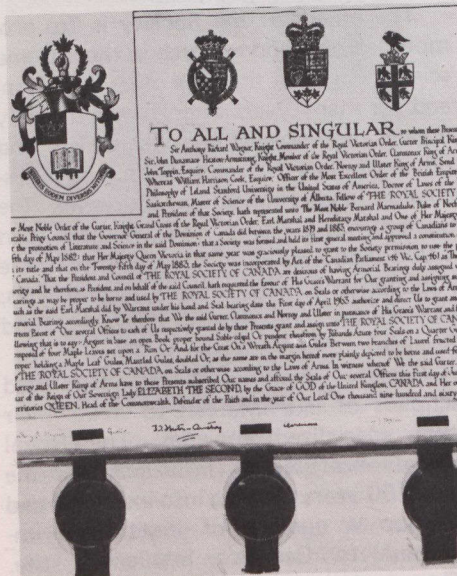 TO ALL AND SINGULAR to whom these Presents
Sir Anthony Richard Wagner, Knight Commander of the Royal Victorian Order, Garter Principal King
Sir John Dunamace Heaton-Armstrong, Knight, Member of the Royal Victorian Order, Clarenceux King of Arms
John Toppin, Esquire, Commander of the Royal Victorian Order, Norroy and Ulster King of Arms Send
Whereas William Harrison Cook, Esquire, Officer of the Most Excellent Order of the British Empire
Philosophy of Leland Stanford University in the United States of America, Doctor of Laws of the
Saskatchewan, Master of Science of the University of Alberta, Fellow of THE ROYAL SOCIETY
and President of that Society, hath represented unto The Most Noble Bernard Marmaduke, Duke of Norfolk
Most Noble Order of the Garter, Knight Grand Cross of the Royal Victorian Order, Earl Marshal and Hereditary Marshal and One of Her Majesty
Privy Council that the Governor General of the Dominion of Canada did between the years 1879 and 1883, encourag a group of Canadians to
the promotion of Literature and Science in the said Dominion: that a Society was formed and held its first general meeting and approved a constitution
day of May 1882: that Her Majesty Queen Victoria in that same year was graciously pleased to grant to the Society permission to use the
title and that on the Twenty fifth day of May 1883, the Society was incorporated by Act of the Canadian Parliament
Canada. That the President and Council of THE ROYAL SOCIETY OF CANADA are desirous of having Armorial Bearings duly assigned
and he therefore, as President and on behalf of the said Council, hath requested the favour of His Grace's Warrant for Our granting and assigning
as may be proper to be borne and used by THE ROYAL SOCIETY OF CANADA on Seals or otherwise according to the Laws of
as the said Earl Marshal did by Warrant under his hand and Seal bearing date the First day of April 1963 authorize and direct Us to grant
Armorial Bearings accordingly Know Ye therefore that We the said Garter, Clarenceux and Norroy and Ulster in pursuance of His Grace's Warrant and
Patent of Our several Offices to each of Us respectively granted do by these Presents grant and assign unto THE ROYAL SOCIETY OF CANADA
that is to say:- Argent in base an open Book proper bound Sable edged Or
of four Maple Leaves set upon a Rim Or And for the Crest On a Wreath Argent and Gules Between two branches of Laurel fructed
proper holding a Maple Leaf Gules, Mantled Gules, doubled Or, as the same are in the margin hereof more plainly depicted to be borne and used
THE ROYAL SOCIETY OF CANADA on Seals or otherwise according to the Laws of Arms. In witness whereof We the said Garter,
and Ulster Kings of Arms have to these Presents subscribed Our names and affixed the Seals of Our several Offices this First day of
of the Reign of Our Sovereign Lady ELIZABETH THE SECOND by the Grace of GOD of the United Kingdom, CANADA and Her
Territories QUEEN, Head of the Commonwealth, Defender of the Faith and in the year of Our Lord One thousand nine hundred and sixty
Clarenceux